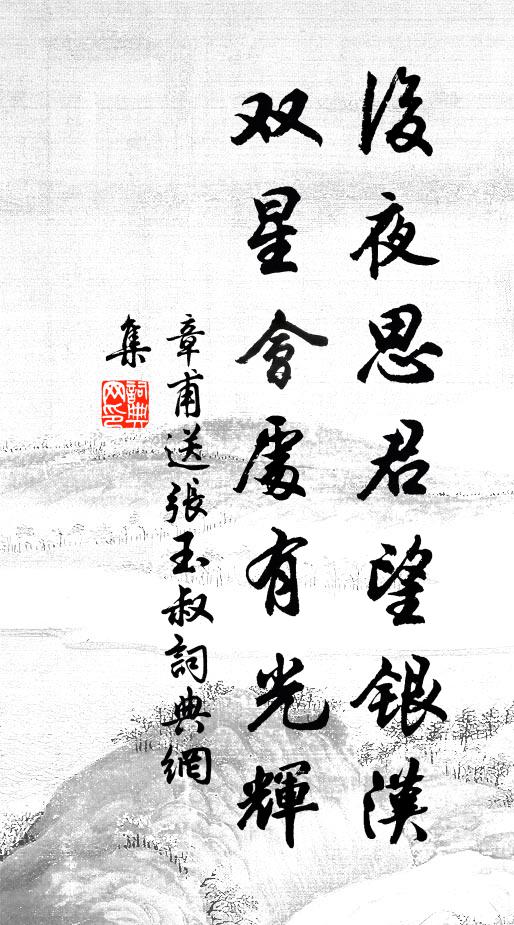 後夜思君望銀漢
双星會處有光輝
章甫送張玉叔詞典網
集
詞典网印